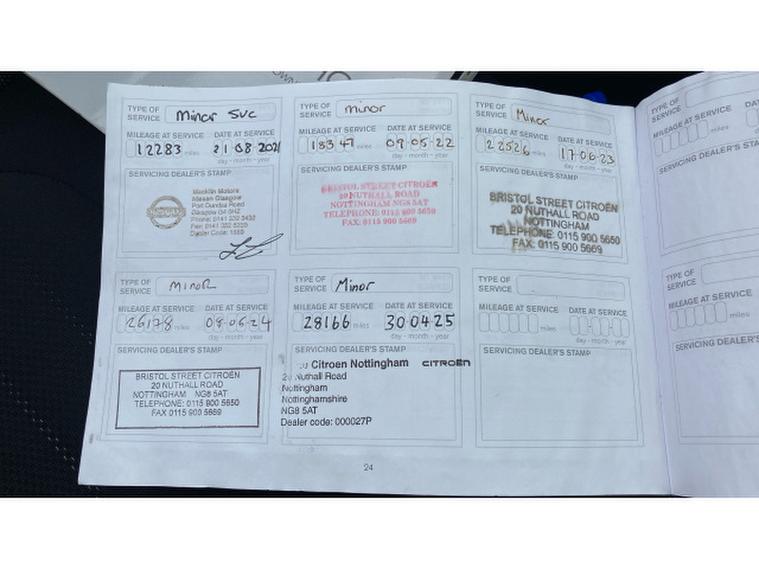 TYPE OF SERVICE Minor SVC
MILEAGE AT SERVICE DATE AT SERVICE
12283 miles 21 08 2021
day - month - year
SERVICING DEALER'S STAMP
Macklin Motors
Nissan Glasgow
Port Dundas Road
Glasgow G4 0HZ
NISSAN
TYPE OF SERVICE minor
MILEAGE AT SERVICE DATE AT SERVICE
18347 miles 09 05 22
day - month - year
SERVICING DEALER'S STAMP
BRISTOL STREET CITROËN
20 NUTHALL ROAD
NOTTINGHAM NG8 5AT
TELEPHONE: 0115 900 5650
FAX: 0115 900 5669
TYPE OF SERVICE Minor
MILEAGE AT SERVICE DATE AT SERVICE
22526 miles 17 06 23
day - month - year
SERVICING DEALER'S STAMP
BRISTOL STREET CITROEN
20 NUTHALL ROAD
NOTTINGHAM
TELEPHONE: 0115 900 5650
FAX: 0115 900 5669
TYPE OF SERVICE
MILEAGE AT SERVICE
miles
SERVICING DEALER'S STA
TYPE OF SERVICE MINOR
MILEAGE AT SERVICE DATE AT SERVICE
26178 miles 08 06 24
day - month - year
SERVICING DEALER'S STAMP
BRISTOL STREET CITROËN
20 NUTHALL ROAD
NOTTINGHAM NG8 5AT
TELEPHONE: 0115 900 5650
FAX 0115 900 5669
TYPE OF SERVICE Minor
MILEAGE AT SERVICE DATE AT SERVICE
28166 miles 30 04 25
day - month - year
SERVICING DEALER'S STAMP
Citroen Nottingham CITROËN
Nuthall Road
Nottingham
Nottinghamshire
NG8 5AT
Dealer code: 000027P
TYPE OF SERVICE
MILEAGE AT SERVICE DATE AT SERVICE
miles
day - month - year
SERVICING DEALER'S STAMP
TYPE OF SERVICE
MILEAGE AT SERVICE
miles
SERVICING DEALER'S S
24